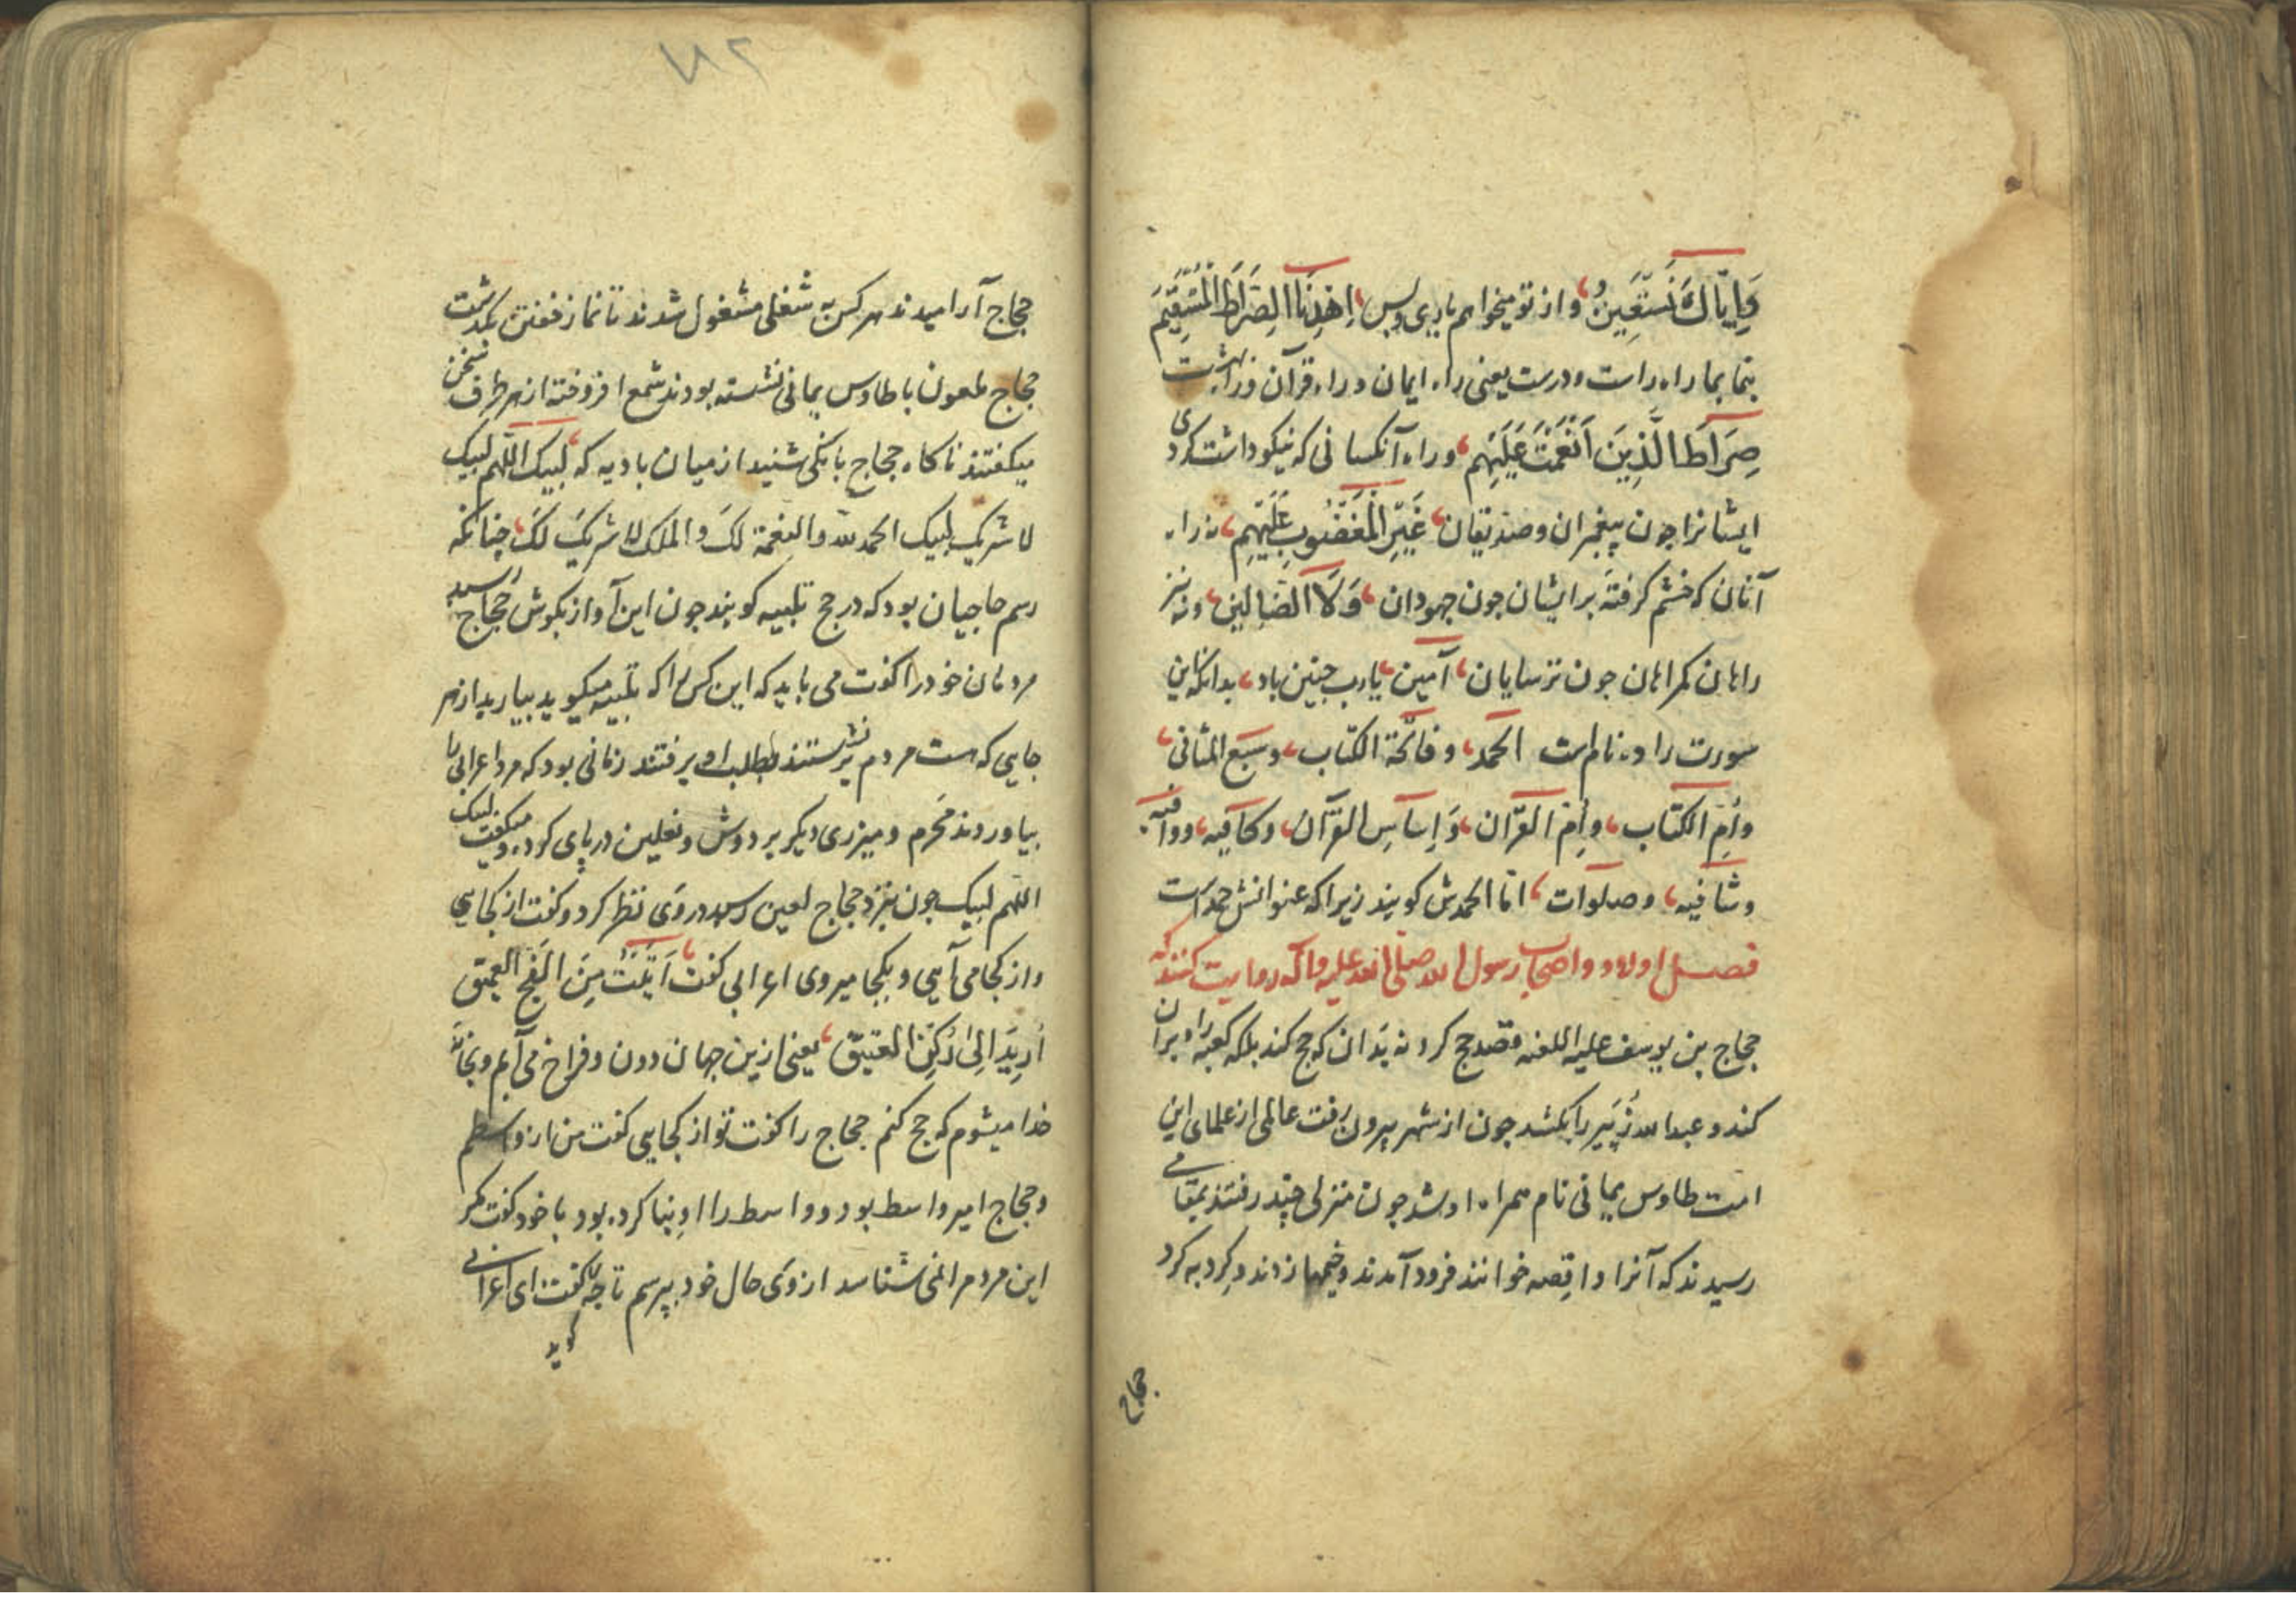 وَاِیَّاكَ نَسْتَعِینُ، و از تو میخواهم یاری و بس، اِهْدِنَا الصِّرَاطَ الْمُسْتَقِیمَ
بنما بما راه راست و درست یعنی راه ایمان و راه قرآن و راه بهشت
صِرَاطَ الَّذِینَ اَنْعَمْتَ عَلَیْهِم، و راه آنکسانی که نیکو داشت کردی
ایشانرا چون پیغمبران و صدیقان، غَیْرِ الْمَغْضُوبِ عَلَیْهِم، نه راه
آنان که خشم گرفتهٔ بر ایشان چون جهودان، وَلَا الضَّالِین، و نه نیز
راهان کمراهان چون ترسایان، آمین، یا رب چنین باد، بدانکه این
سورت را ده نام است الحمد، و فاتحة الکتاب، و سبع المثانی،
و اُمّ الکتاب، و اُمّ القرآن، وَ اساس القرآن، و کافیه، و وافیه،
و شافیه، و صلوات، امّا الحمدش کویند زیرا که عنوانش حمد است
فصل اولاد و اصحاب رسول الله صلی الله علیه و آله روایت کنند که
حجاج بن یوسف علیه اللعنه قصد حج کرد نه بدان که حج کند بلکه کعبه را ویران
کند و عبدالله زُبَیر را بکشد چون از شهر بیرون رفت عالمی از علمای این
امت طاوس یمانی نام همراه او شد چون منزلی چند رفتند بمقامی
رسیدند که آنرا واقصه خوانند فرود آمدند و خیمها زدند و کرد به کرد
حجاج
۷۸۲
حجاج آرامیدند هر کس به شغلی مشغول شدند تا نماز خفتن بکذشت
حجاج ملعون با طاوس یمانی نشسته بودند شمع افروخته از هر طرف سخن
میکفتند ناکاه حجاج بانکی شنید از میان بادیه که، لبیک اللّهم لبیک
لا شریک لبیک الحمد لله والنعمة لکَ والملک لا شریکَ لکَ، چنانکه
رسم حاجیان بود که در حج تلبیه کویند چون این آواز بکوش حجاج رسید
مردمان خود را کفت می باید که این کس را که تلبیه میکوید بیارید از هر
جایی که هست مردم بر نشستند بطلب او برفتند زمانی بود که مرد اعرابی را
بیاوردند مُحرم و میزری دیکر بر دوش و نعلین در پای کرده و میکفت لبیک
اللّهم لبیک چون بنزد حجاج لعین رسید در وی نظر کرد و کفت از کجایی
و از کجا می آیی و بکجا میروی اعرابی کفت، اَتَیْتُ مِنَ الْفَجّ العمیق
اُرِیدُ اِلیٰ رُکنِ العتیق، یعنی ازین جهان دون و فراخ می آیم و بخانهٔ
خدا میشوم که حج کنم حجاج را کفت تو از کجایی کفت من از واسطم
و حجاج امیر واسط بود و واسط را او بنا کرده بود با خود کفت مکر
این مرد مرا نمی شناسد از وی حال خود بپرسم تا چه کفت ای اعرابی
کوید